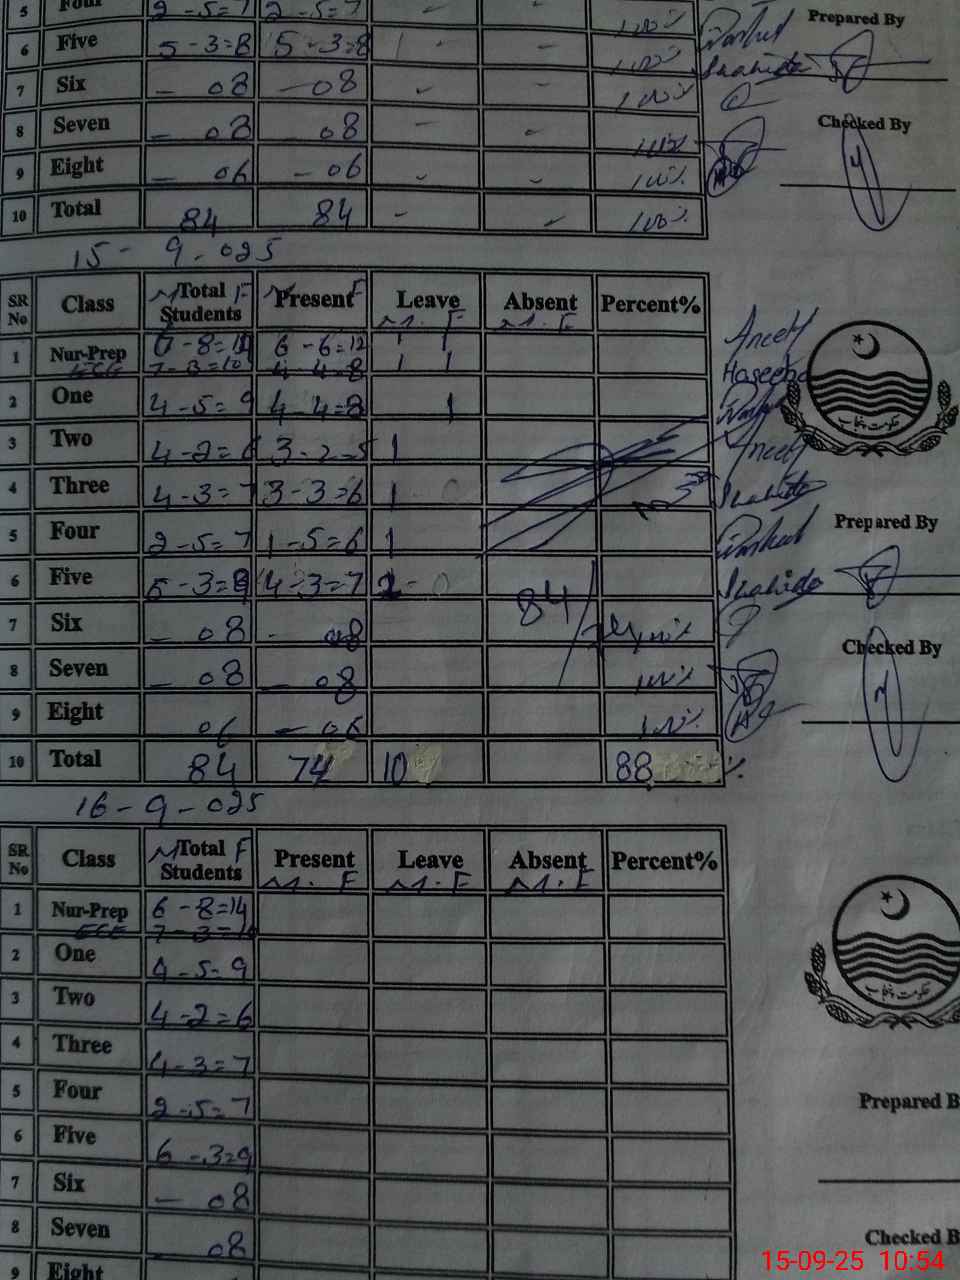 5 Four 2-5=7 2-5=7 - - 100%
Prepared By
6 Five 5-3=8 5-3=8 - 100%
Shahida
7 Six - 08 - 08 - - 100%
Checked By
8 Seven - 08 08 - - 100%
9 Eight - 06 - 06 - - 100%
10 Total 84 84 - - 100%
15-9-025
SR No Class M Total F Students M Present F Leave M. F Absent M. F Percent%
1 Nur-Prep 6-8=14 6-6=12 1 1
ECE 7-3=10 4-4=8 1 1
2 One 4-5=9 4-4=8 1
3 Two 4-2=6 3-2-5 1
4 Three 4-3=7 3-3=6 1
Shahida
5 Four 2-5=7 1-5=6 1
Prepared By
6 Five 4-3=7
Shahida
84
7 Six - 08 - 08 100%
Checked By
8 Seven - 08 - 08 100%
9 Eight 06 - 06 100%
10 Total 84 74 10 88 %
حکومت پنجاب
16-9-025
SR No Class M Total F Students Present M. F Leave M. F Absent M. F Percent%
1 Nur-Prep 6-8=14
ECE 7-3=10
2 One 4-5-9
3 Two 4-2=6
4 Three 4-3=7
5 Four 2-5=7
6 Five 6-3=9
7 Six - 08
8 Seven 08
9 Eight
حکومت پنجاب
Prepared B
Checked B
15-09-25 10:54